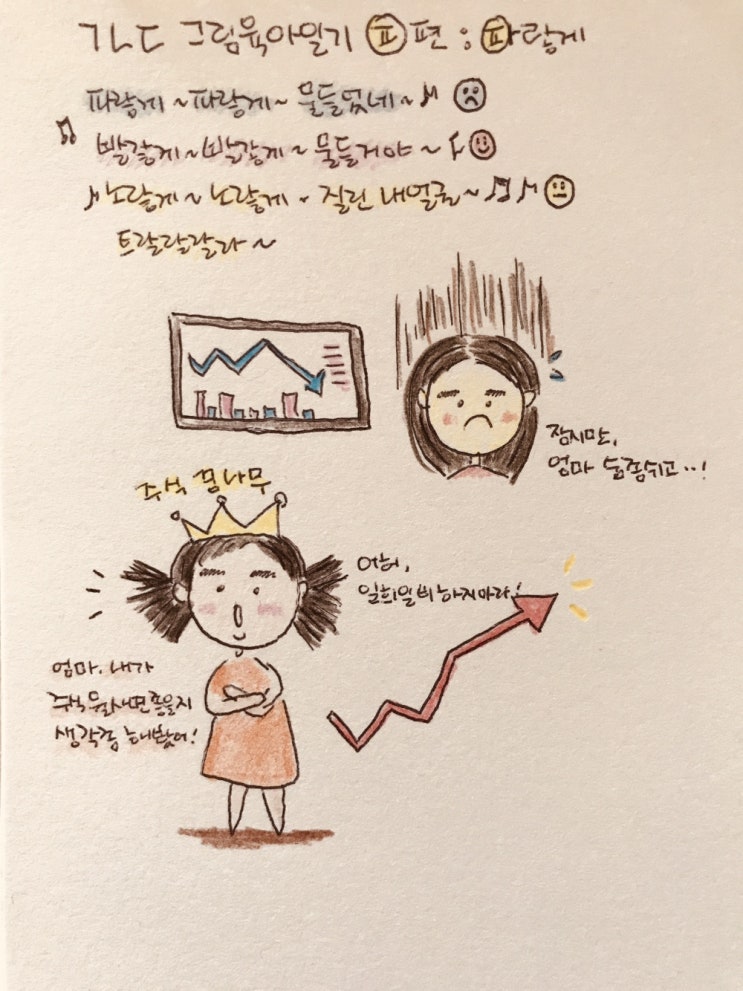 ㄱㄴㄷ 그림육아일기 ㉤편 : 파랗게
파랗게~파랗게~ 물들었네~♪
빨갛게~빨갛게~물들거야~♪
♪노랗게~노랗게~ 질린 내얼굴~♫♪
트랄랄랄라~
잠시만,
엄마 숨좀쉬고..!
주식 꿈나무
어허,
일희일비하지마라!
엄마. 내가
주식 뭐사면좋을지
생각좀 해봤어!